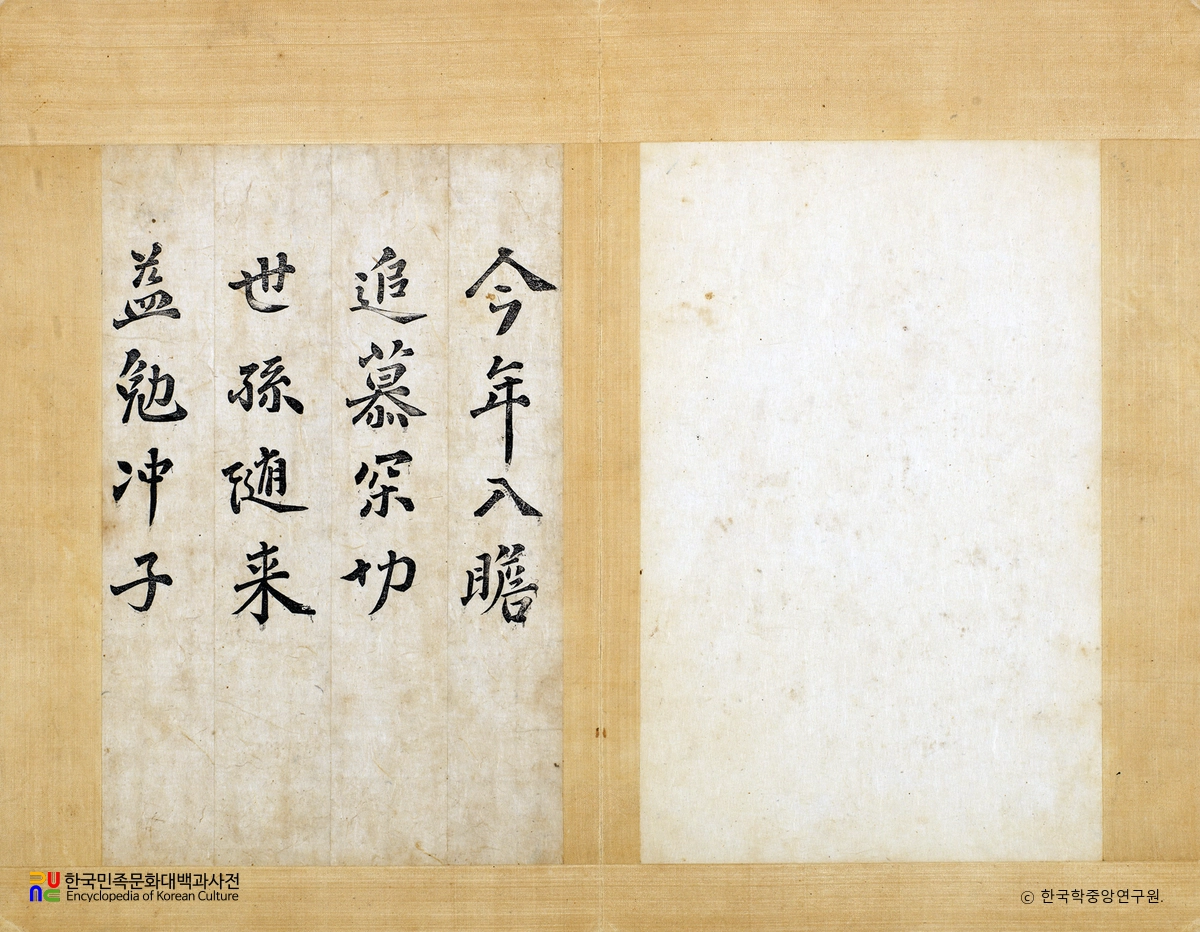 今年入瞻
追慕深切
世孫随来
益勉冲子
한국민족문화대백과사전
Encyclopedia of Korean Culture
ⓒ 한국학중앙연구원.